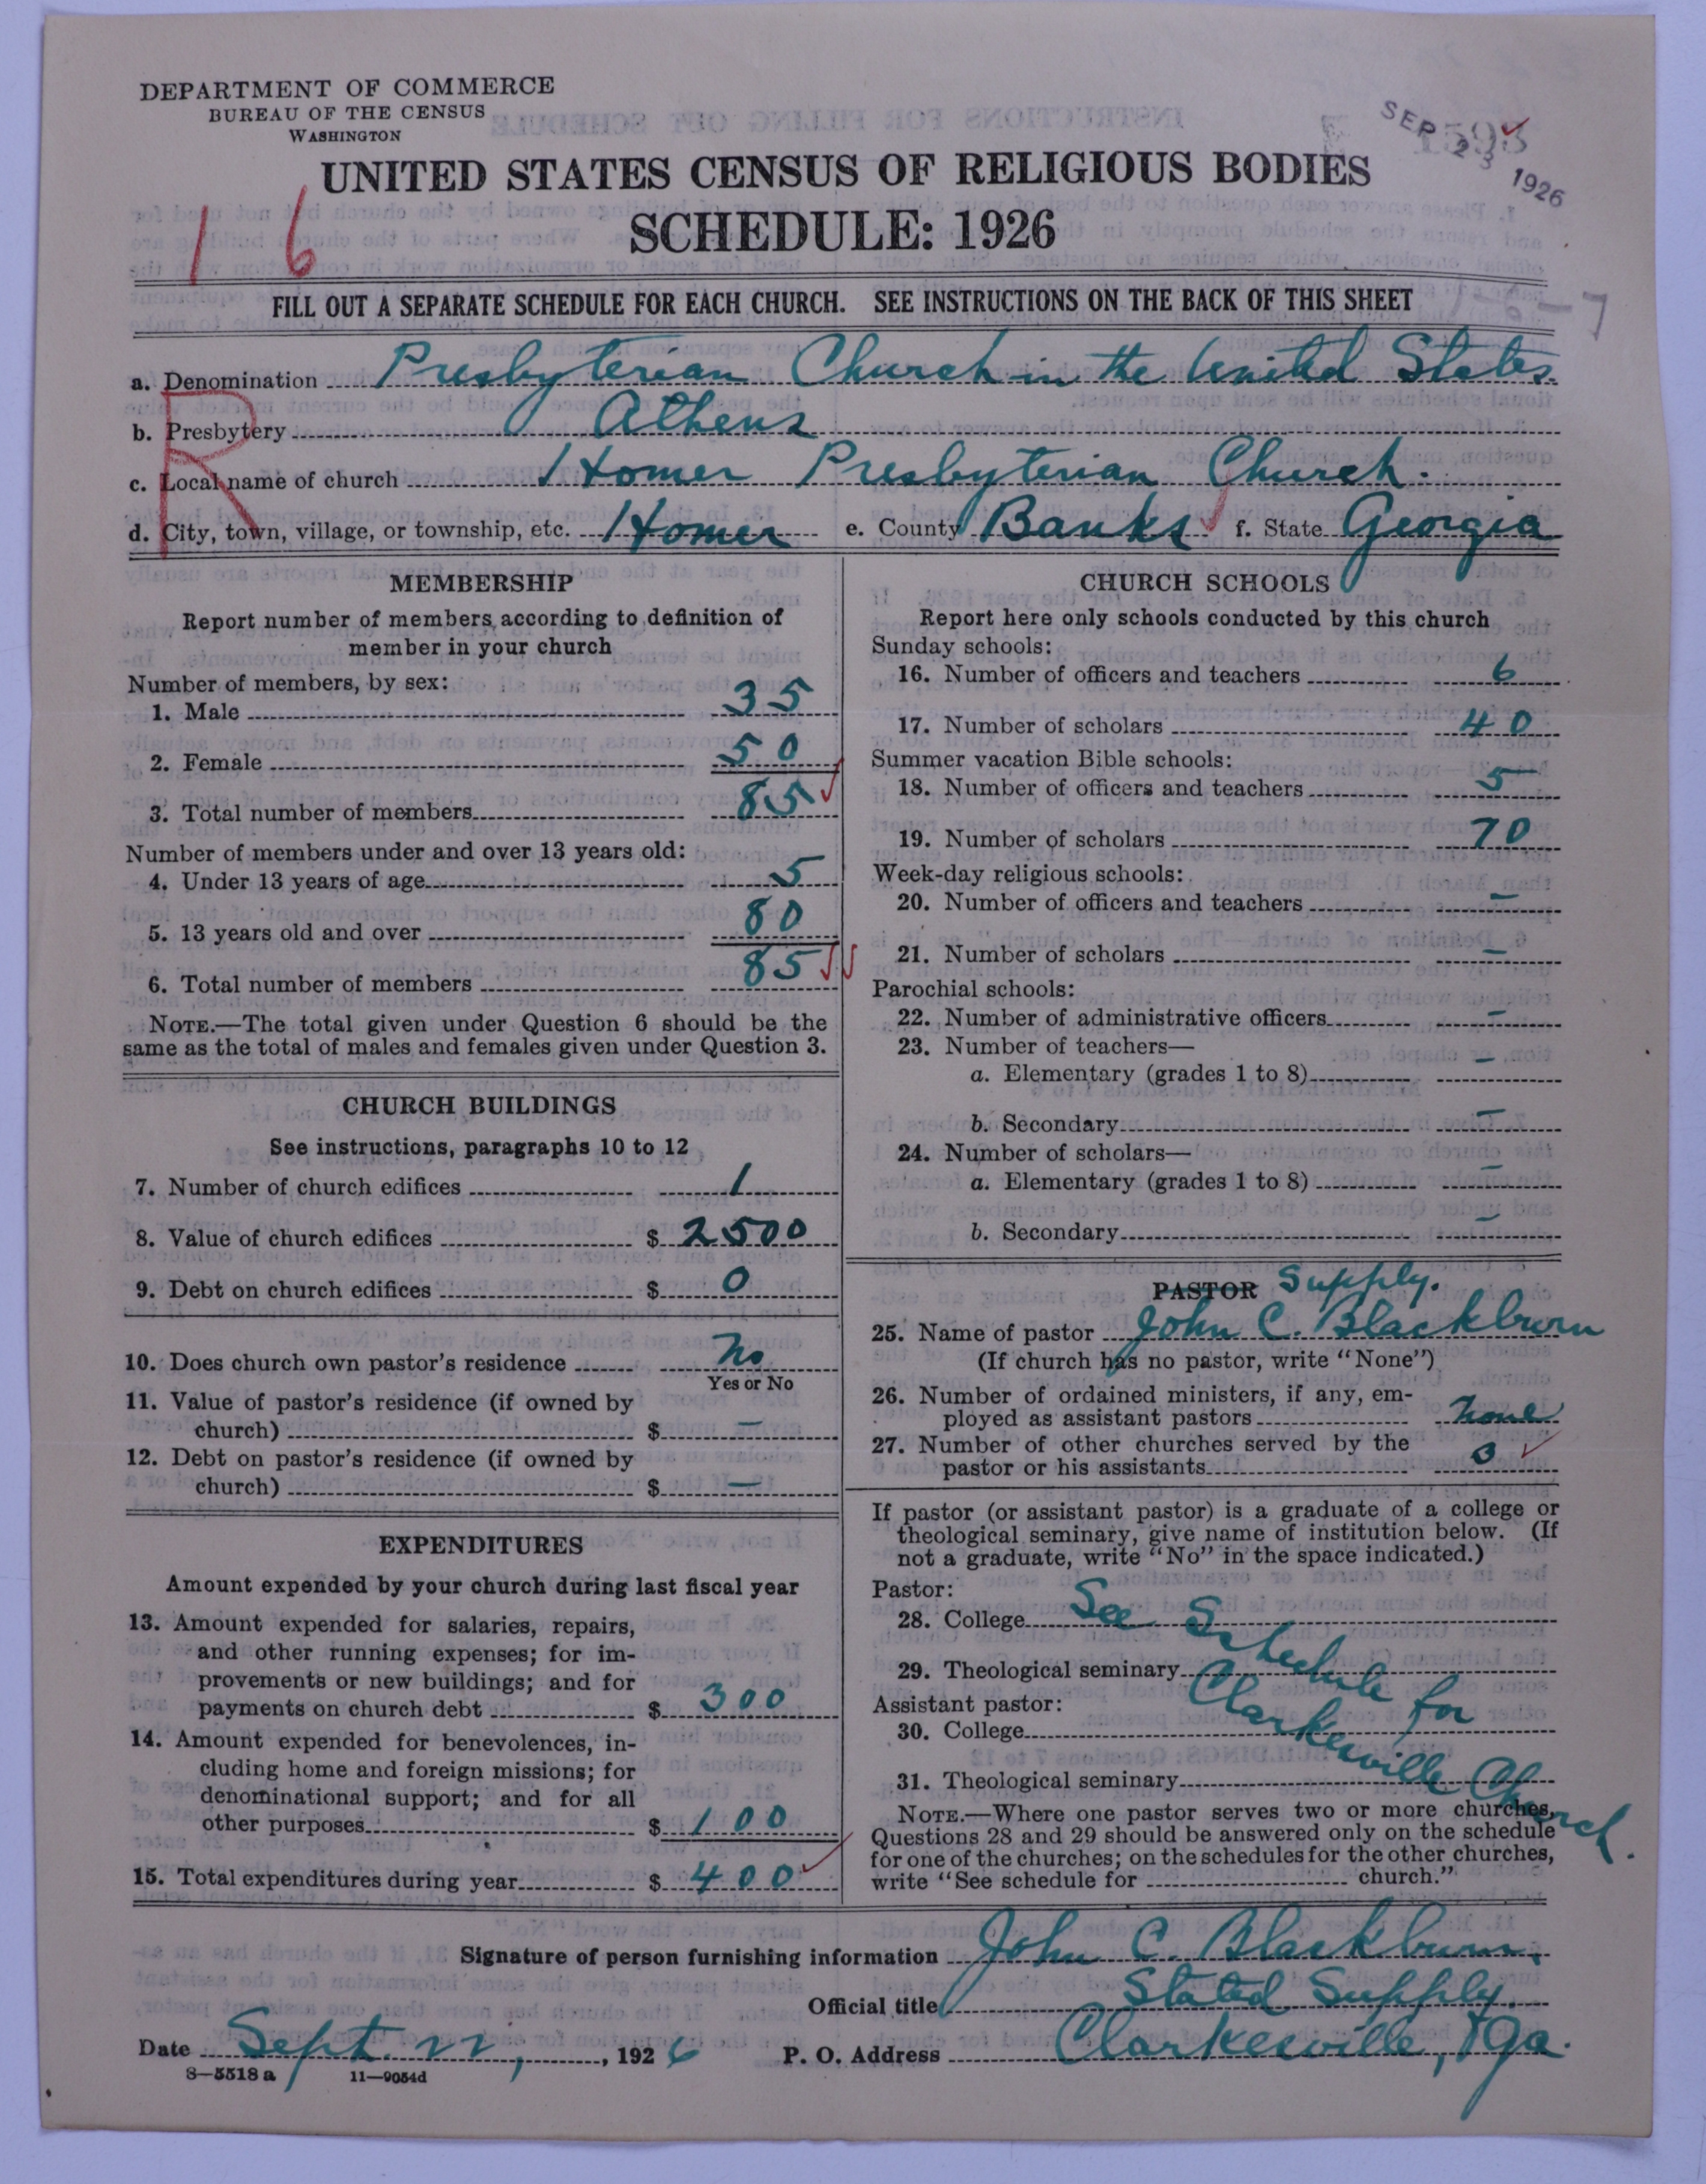 DEPARTMENT OF COMMERCE
BUREAU OF THE CENSUS
WASHINGTON
SEP 23 1926
UNITED STATES CENSUS OF RELIGIOUS BODIES
SCHEDULE: 1926
16
FILL OUT A SEPARATE SCHEDULE FOR EACH CHURCH. SEE INSTRUCTIONS ON THE BACK OF THIS SHEET
R
a. Denomination Presbyterian Church in the United States.
b. Presbytery Athens
c. Local name of church Homer Presbyterian Church.
d. City, town, village, or township, etc. Homer e. County Banks f. State Georgia
MEMBERSHIP
Report number of members according to definition of
member in your church
Number of members, by sex:
1. Male 35
2. Female 50
3. Total number of members 85
Number of members under and over 13 years old:
4. Under 13 years of age 5
5. 13 years old and over 80
6. Total number of members 85
NOTE.—The total given under Question 6 should be the
same as the total of males and females given under Question 3.
CHURCH BUILDINGS
See instructions, paragraphs 10 to 12
7. Number of church edifices 1
8. Value of church edifices $ 2500
9. Debt on church edifices $ 0
10. Does church own pastor's residence No
Yes or No
11. Value of pastor's residence (if owned by
church) $ —
12. Debt on pastor's residence (if owned by
church) $ —
EXPENDITURES
Amount expended by your church during last fiscal year
13. Amount expended for salaries, repairs,
and other running expenses; for im-
provements or new buildings; and for
payments on church debt $ 300
14. Amount expended for benevolences, in-
cluding home and foreign missions; for
denominational support; and for all
other purposes $ 100
15. Total expenditures during year $ 400
CHURCH SCHOOLS
Report here only schools conducted by this church
Sunday schools:
16. Number of officers and teachers 6
17. Number of scholars 40
Summer vacation Bible schools:
18. Number of officers and teachers 5
19. Number of scholars 70
Week-day religious schools:
20. Number of officers and teachers —
21. Number of scholars —
Parochial schools:
22. Number of administrative officers —
23. Number of teachers—
a. Elementary (grades 1 to 8) —
b. Secondary —
24. Number of scholars—
a. Elementary (grades 1 to 8) —
b. Secondary —
PASTOR Supply.
25. Name of pastor John C. Blackburn
(If church has no pastor, write "None")
26. Number of ordained ministers, if any, em-
ployed as assistant pastors None
27. Number of other churches served by the
pastor or his assistants 3
If pastor (or assistant pastor) is a graduate of a college or
theological seminary, give name of institution below. (If
not a graduate, write "No" in the space indicated.)
Pastor:
28. College See Schedule for
29. Theological seminary Clarkesville Church.
Assistant pastor:
30. College
31. Theological seminary
NOTE.—Where one pastor serves two or more churches,
Questions 28 and 29 should be answered only on the schedule
for one of the churches; on the schedules for the other churches,
write "See schedule for church."
Signature of person furnishing information John C. Blackburn,
Official title Stated Supply.
Date Sept. 22, 1926 P. O. Address Clarkesville, Ga.
8—5518 a 11—9054d